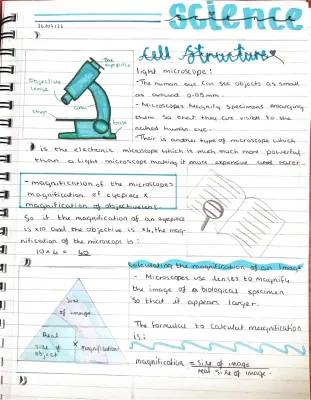 science
Cell Structure
light microscope:
- The human eye can see objects as small
as around 0.05mm.
- Microscopes Magnify specimens enlarging
them so that they are visible to the
naked human eye.
- Their is another type of microscope which
is the electronic microscope which is much much more powerful
than a light microscope making it more expensive and rarer.
The eyepiece
Objective
lense
arm
stage
base
- magnification of the microscope=
magnification of eyepiece x
magnification of objective lens.
So if the magnification of an eyepiece
is x10 and the objective is x4, the mag-
nification of the microscope is:
10 x 4 = 40
Calculating the magnification of an Image
- Microscopes use lenses to magnify
the image of a biological specimen
so that it appears larger.
The formula to calculate magnification
is:
magnification = size of image
real size of image.
Size
of image
Real
size of
object
x
Magnification